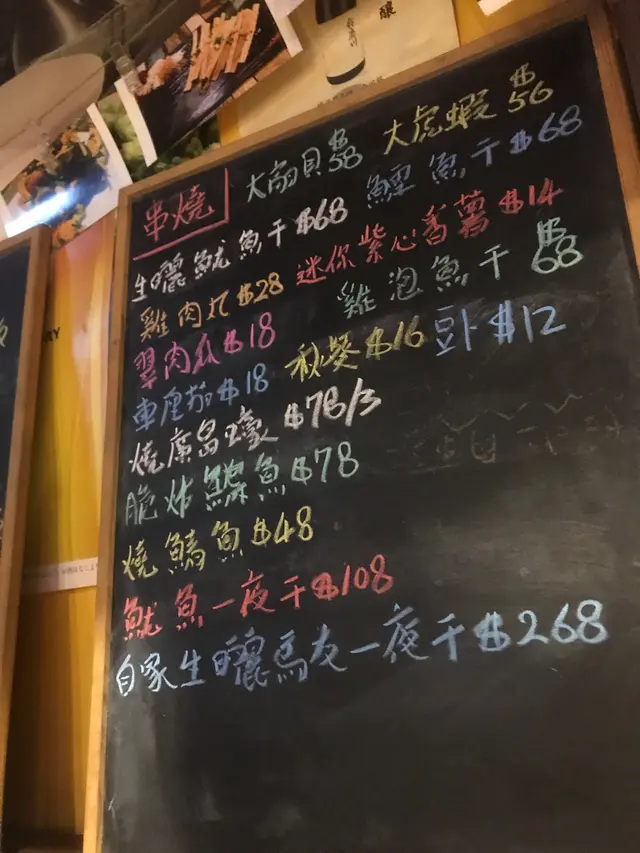 釀
串燒 大扇貝$58 大虎蝦$56
生曬魷魚干$68 鱈魚干$68
雞肉丸$28 迷你紫心番薯$14
翠肉瓜$18 雞泡魚干$68
車厘茄$18 秋葵$16 豆卜$12
燒廣島蠔$78/3
脆炸鱈魚$78
燒鯖魚$48
魷魚一夜干$108
自家生曬馬友一夜干$268